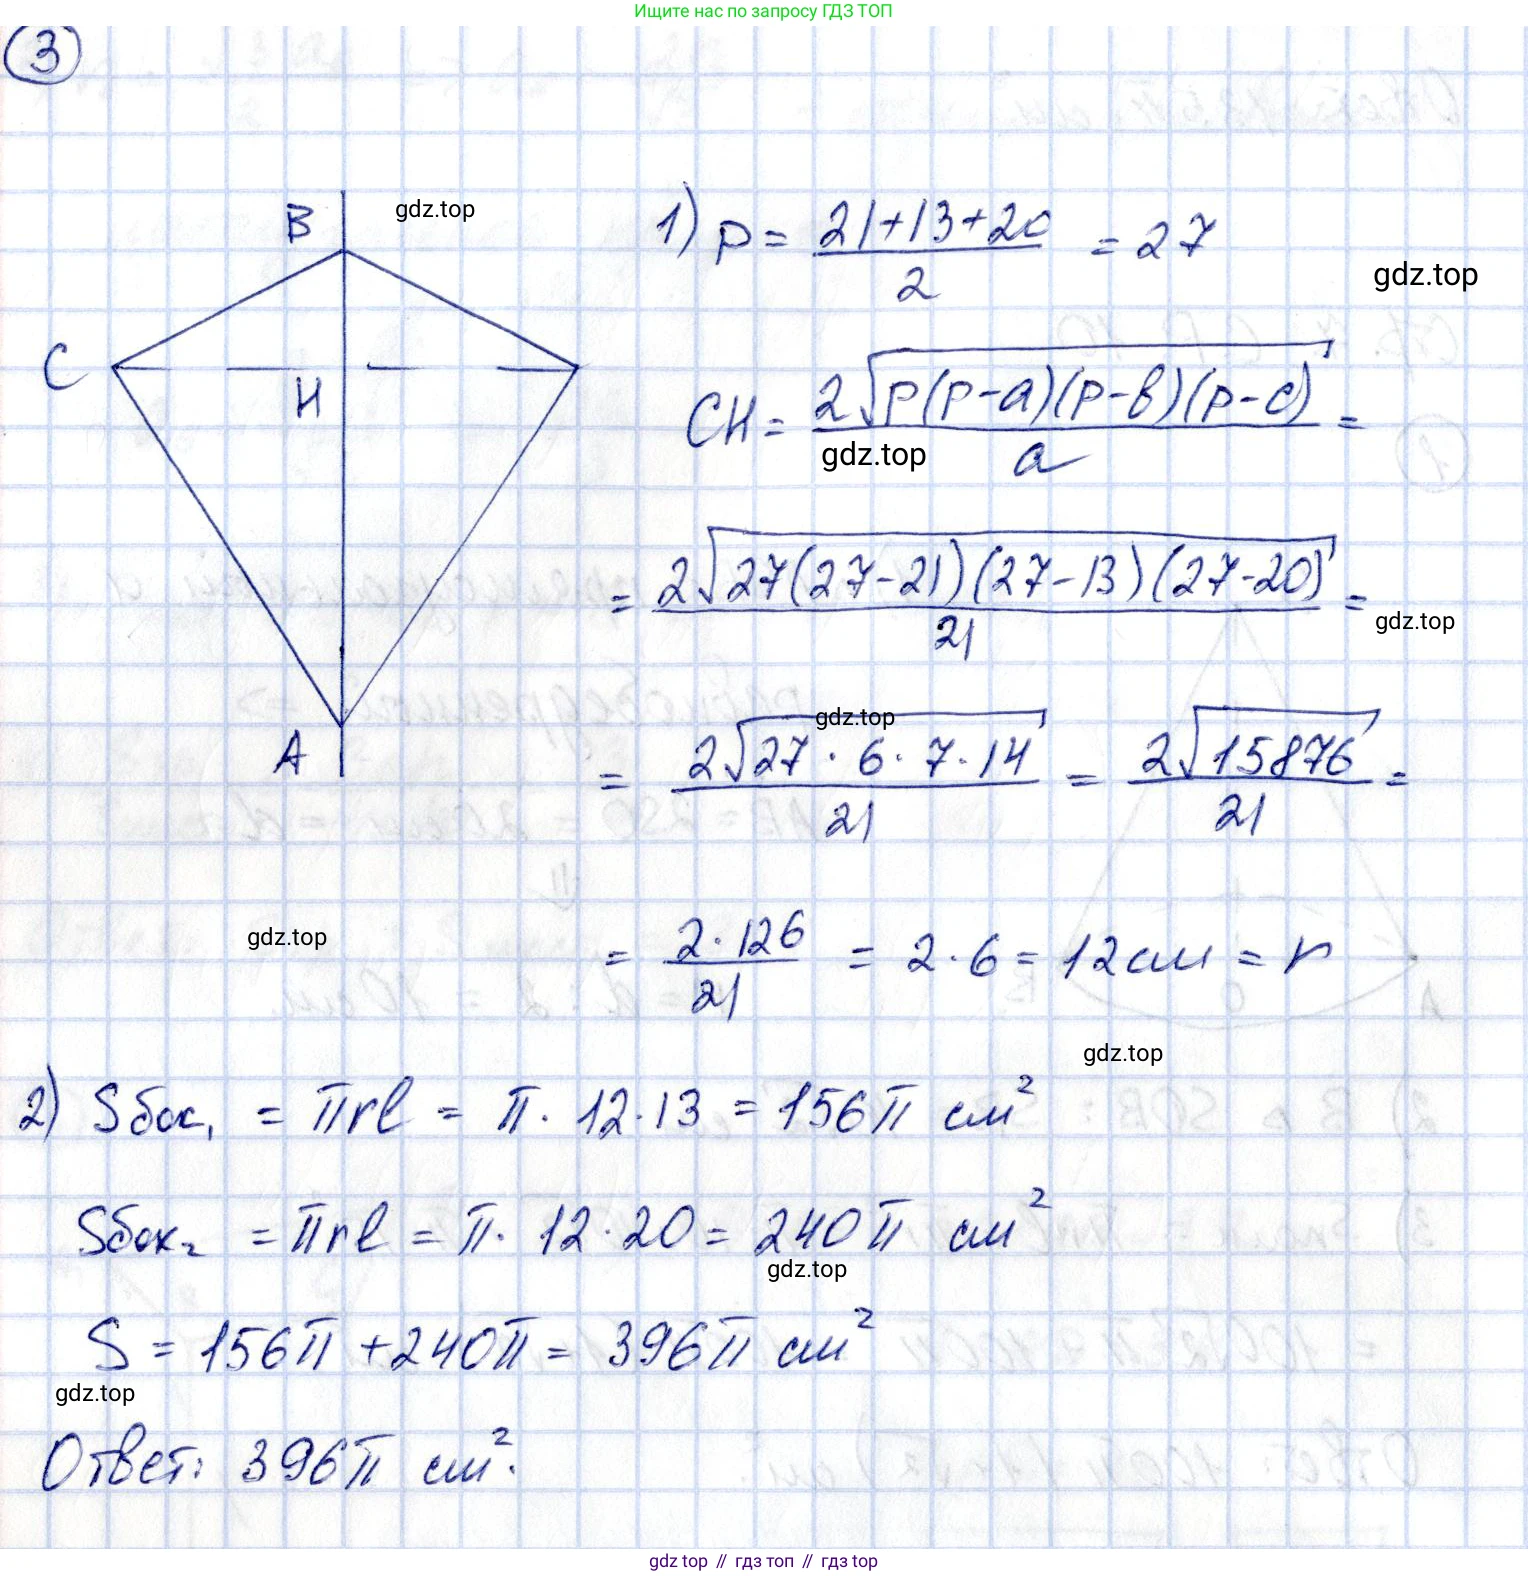 Ищите нас по запросу ГДЗ ТОП
3
B
gdz.top
1) p = (21+13+20)/2 = 27
gdz.top
C
H
CH = 2√(p(p-a)(p-b)(p-c))/a =
gdz.top
= 2√(27(27-21)(27-13)(27-20))/21 =
gdz.top
gdz.top
A
= 2√(27·6·7·14)/21 = 2√15876/21 =
gdz.top
= 2·126/21 = 2·6 = 12 см = r
gdz.top
2) Sбок₁ = πrl = π·12·13 = 156π см²
Sбок₂ = πrl = π·12·20 = 240π см²
gdz.top
S = 156π + 240π = 396π см²
gdz.top
Ответ: 396π см².
gdz top // гдз топ // гдз top